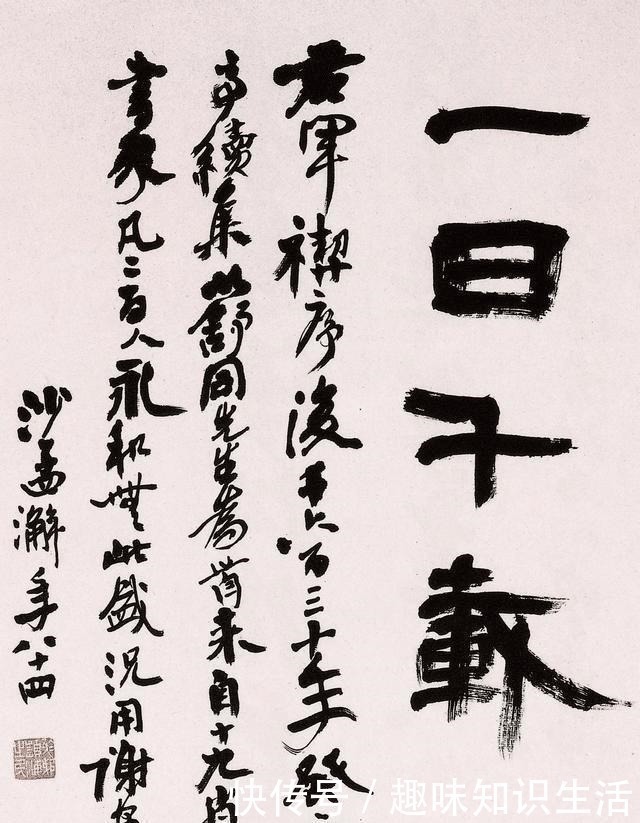 一日千載
右軍禊序後千六百三十年癸
亥續集以舒同先生為首來自十九省
書家凡二百人永和無此盛況用謝
沙孟澥年八十四
快传号 / 趣味知识生活